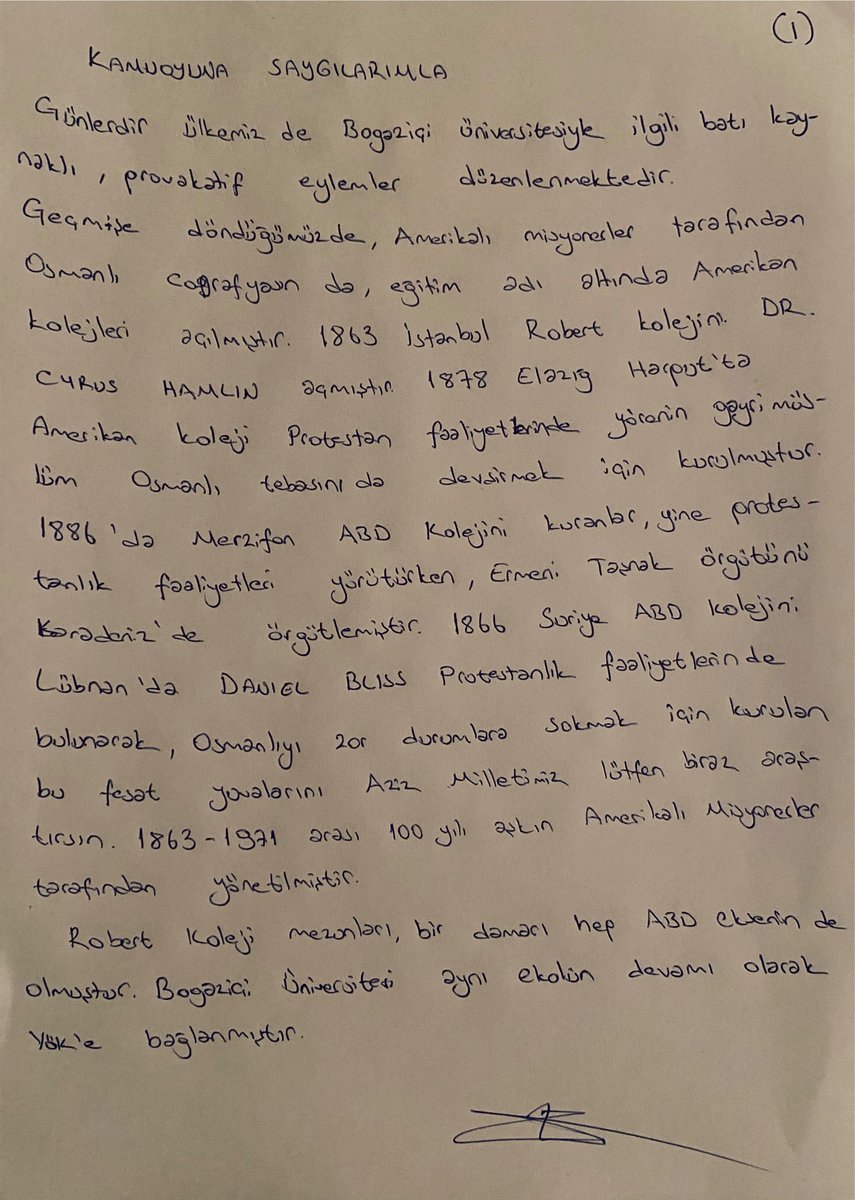 (1)
KAMUOYUNA SAYGILARIMLA
Günlerdir ülkemiz de Bogaziçi üniversitesiyle ilgili batı kay-
naklı, provakatif eylemler düzenlenmektedir.
Geçmişe döndüğümüzde, Amerikalı misyonerler tarafından
Osmanlı coğrafyasın da, eğitim adı altında Amerikan
kolejleri açılmıştır. 1863 İstanbul Robert kolejini. DR.
CYRUS HAMLIN açmıştır. 1878 Elazıg Harput'ta
Amerikan koleji Protestan faaliyetlerinde yörenin gayri müs-
lüm Osmanlı tebasını da devsirmek için kurulmuştur.
1886'da Merzifon ABD Kolejini kuranlar, yine protes-
tanlık faaliyetleri yürütürken, Ermeni Taşnak örgütünü
Karadeniz'de örgütlemiştir. 1866 Suriye ABD kolejini
Lübnan'da DANIEL BLISS Protestanlık faaliyetlerin de
bulunarak, Osmanlıyı zor durumlara sokmak için kurulan
bu fesat yuvalarını Aziz Milletimiz lütfen biraz araş-
tırsın. 1863-1971 arası 100 yılı aşkın Amerikalı Misyonerler
tarafından yönetilmiştir.
Robert Koleji mezunları, bir damarı hep ABD eksenin de
olmuştur. Bogaziçi Üniversitesi aynı ekolün devamı olarak
YÖK'e bağlanmıştır.